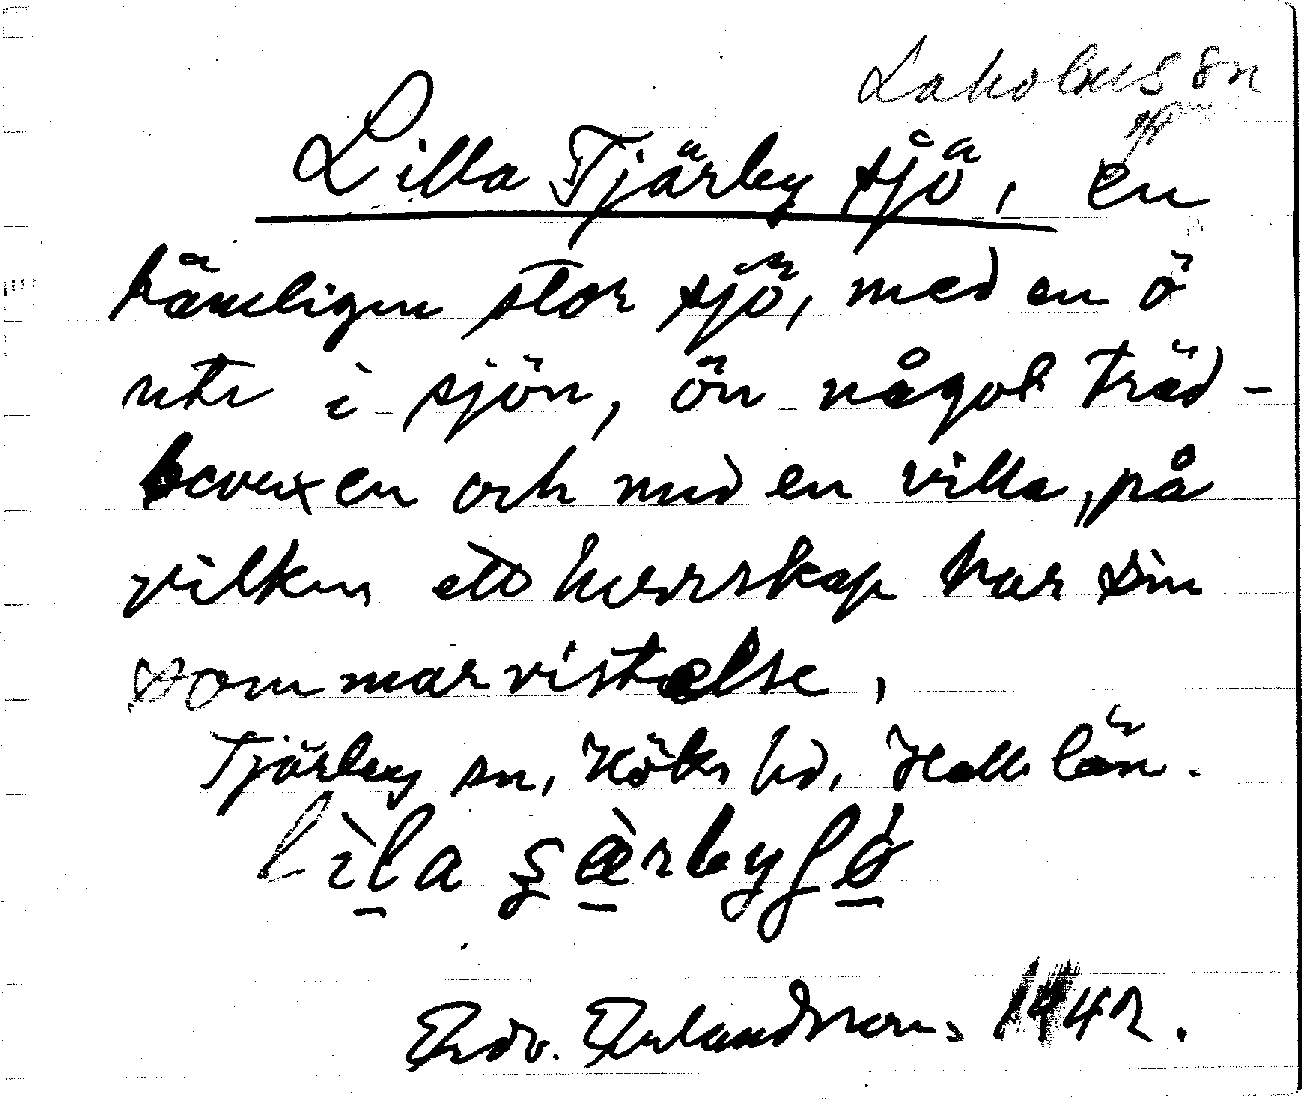 Laholms sn
Lilla Tjärby sjö, en
hämligen stor sjö, med en ö
ute i sjön, ön något träd-
bevuxen och med en villa, på
vilken ett herrskap har sin
sommarvistelse,
Tjärby sn, Höks hd, Hall. län.
lìla şæ̀rbyʃǿ
Edv. Erlandsson, 1942.